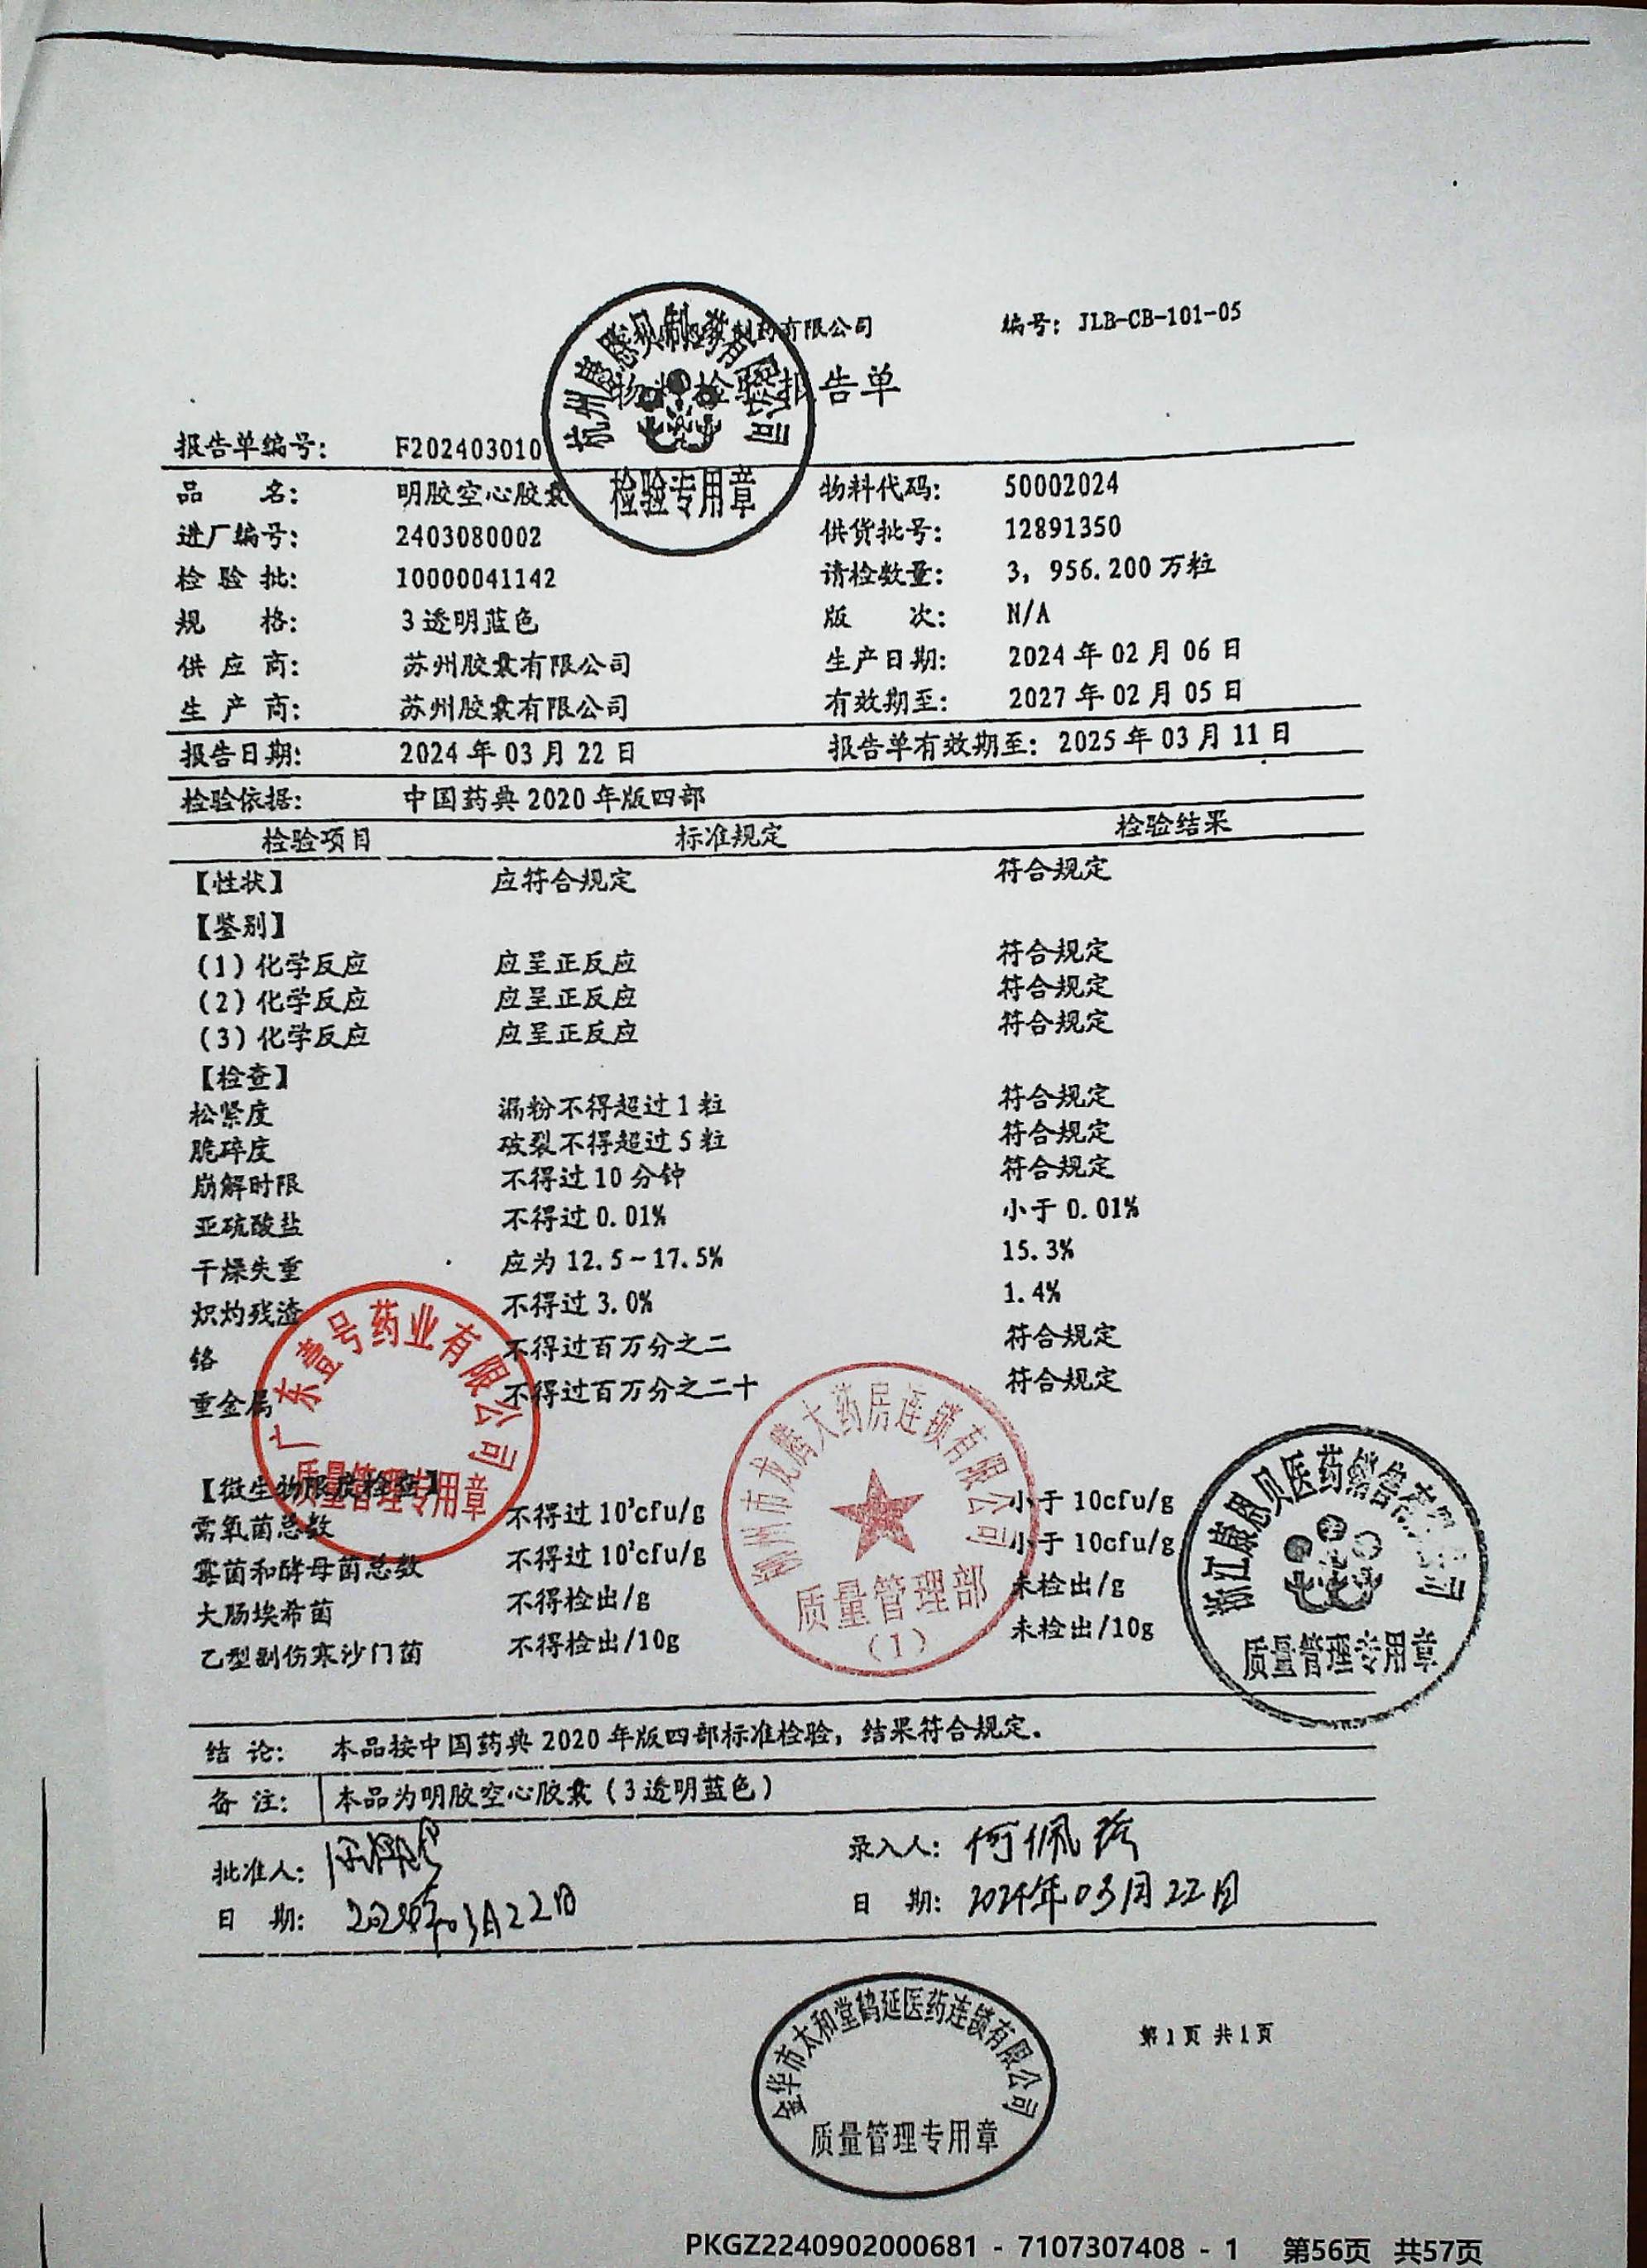 制药有限公司
编号：JLB-CB-101-05
物料检验报告单
报告单编号： F202403010
品 名： 明胶空心胶囊 物料代码： 50002024
进厂编号： 2403080002 供货批号： 12891350
检 验 批： 10000041142 请检数量： 3，956.200万粒
规 格： 3透明蓝色 版 次： N/A
供 应 商： 苏州胶囊有限公司 生产日期： 2024年02月06日
生 产 商： 苏州胶囊有限公司 有效期至： 2027年02月05日
报告日期： 2024年03月22日 报告单有效期至：2025年03月11日
检验依据： 中国药典2020年版四部
检验项目 标准规定 检验结果
【性状】 应符合规定 符合规定
【鉴别】
(1)化学反应 应呈正反应 符合规定
(2)化学反应 应呈正反应 符合规定
(3)化学反应 应呈正反应 符合规定
【检查】
松紧度 漏粉不得超过1粒 符合规定
脆碎度 破裂不得超过5粒 符合规定
崩解时限 不得过10分钟 符合规定
亚硫酸盐 不得过0.01% 小于0.01%
干燥失重 应为12.5~17.5% 15.3%
炽灼残渣 不得过3.0% 1.4%
铬 不得过百万分之二 符合规定
重金属 不得过百万分之二十 符合规定
【微生物限度检查】
需氧菌总数 不得过10³cfu/g 小于10cfu/g
霉菌和酵母菌总数 不得过10²cfu/g 小于10cfu/g
大肠埃希菌 不得检出/g 未检出/g
乙型副伤寒沙门菌 不得检出/10g 未检出/10g
结 论： 本品按中国药典2020年版四部标准检验，结果符合规定。
备 注： 本品为明胶空心胶囊（3透明蓝色）
批准人： 录入人：何佩
日 期： 2024年03月22日 日 期：2024年03月22日
第1页 共1页
杭州康恩贝制药有限公司
检验专用章
广东壹号药业有限公司
质量管理专用章
湖州市龙腾大药房连锁有限公司
质量管理部
（1）
浙江康恩贝医药销售有限公司
质量管理专用章
金华市太和堂鹤延医药连锁有限公司
质量管理专用章
PKGZ2240902000681 - 7107307408 - 1 第56页 共57页